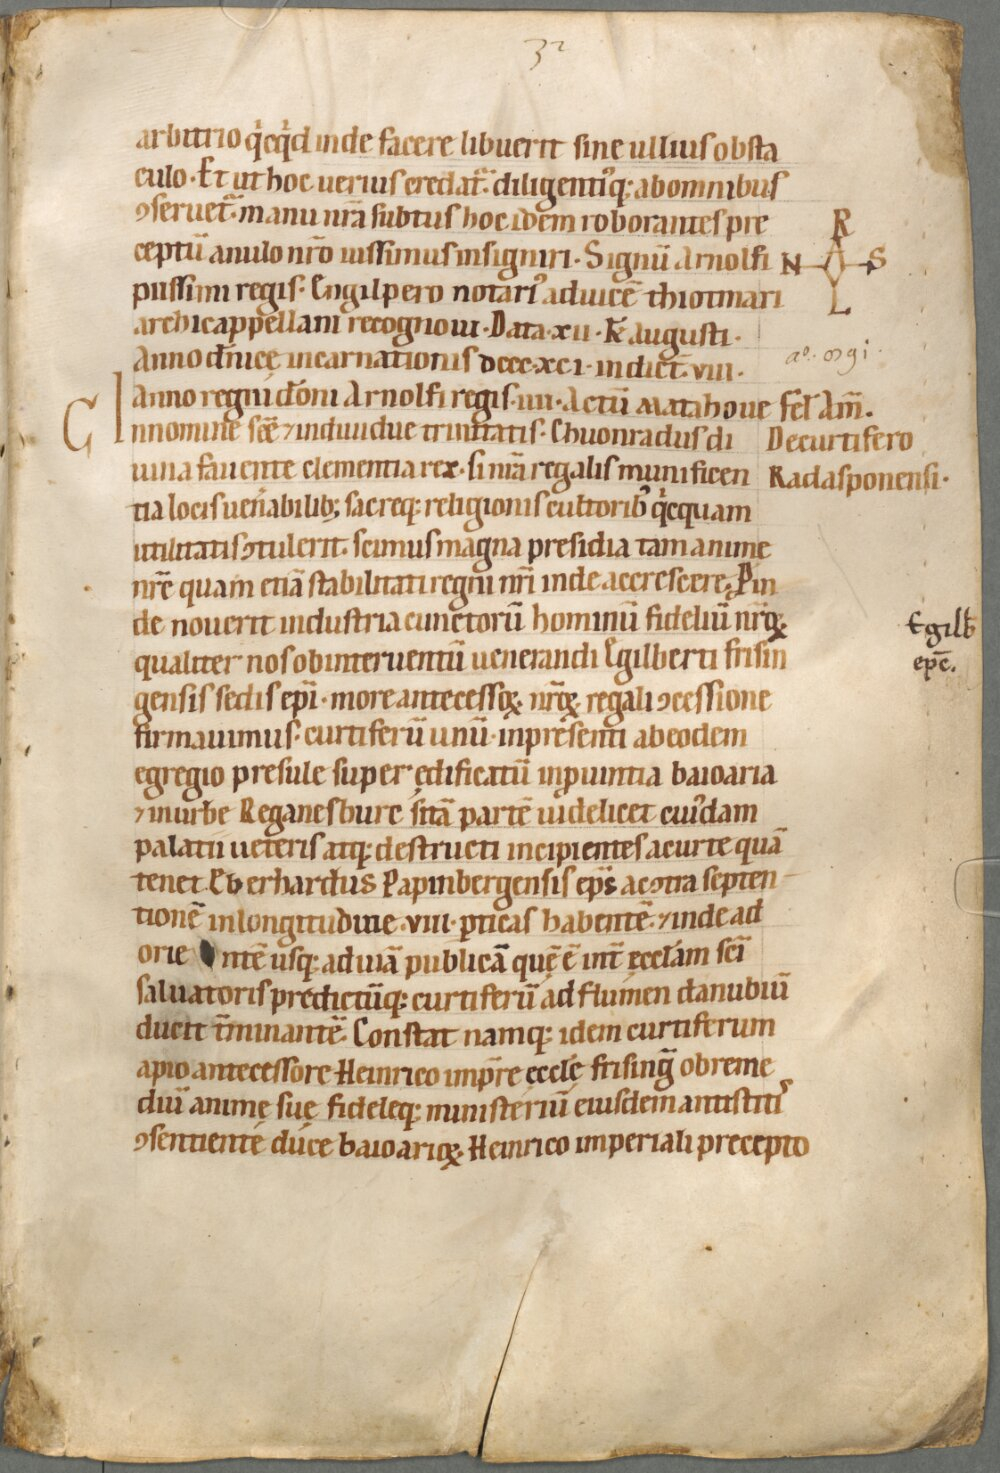 32
arbitrio q̓cq̓d inde facere libuerit sine ullius obsta
culo · Et ut hoc uerius credat᷑ · diligentiꝰq; ab omnibus
ꝯseruet᷑ · manu nr̄a subtus hoc idem roborantes pre
ceptū anulo nr̄o iussimus insigniri · Signū Arnolfi
R
N A S
L
piissimi regis · Engilpero notariꝰ aduicē thiotmari
archicappellani recognoui · Data · xii · kł augusti ·
Anno dn̄icę incarnationis dccc · xc · i · indict̄ · viii ·
aº · 891 ·
Anno regni dōni Arnolfi regis · iiii · Actū Matahoue felᵗ Am̄ .
C
Innomine scē ⁊ indiuidue trinitatis · Chuonradus di
De curtifero
uina fauente clementia rex · si nr̄a regalis munificen
Radasponensi ·
tia locis uen̄abilib; sacreq; religionis cultoribꝰ q̓cquam
utilitatis ꝯtulerit · scimus magna presidia tam anime
nr̄e quam etiā stabilitati regni nr̄i inde accrescere · P̲in
de nouerit industria cunctorū hominū fideliū nr̄oꝝ
Egilb̄
qualiter nos ob interuentū uenerandi Egilberti frisin
epc̄ .
gensis sedis epi̅ · more antecessoꝝ nr̄oꝝ regali ꝯcessione
firmauimus · curtiferū unū · inpresenti ab eodem
egregio presule super ędificatū in ꝓuintia baioaria
⁊ in urbe Reganesburc sitā partē uidelicet cuiꝰdam
palatii ueteris atq; destructi incipientes a curte quā
tenet Eberhardus Papinbergensis epc̄ ac ꝯtra septen
tionē in longitudine · viii · ꝑticas habentē · ⁊ inde ad
orientē usq; ad uiā publicā quę ē int̄ ecclam sc̄i
saluatoris predictūq; curtiferū ad flumen danubiū
ducit t̄minantē · Constat namq; idem curtiferum
a pio antecessore Heinrico impr̄e eccłę frising̅ ob reme
diū animę suę fideleq; ministeriū eiusdem antistitiꝰ
ꝯsentiente duce baioarioꝝ · Heinrico imperiali precepto